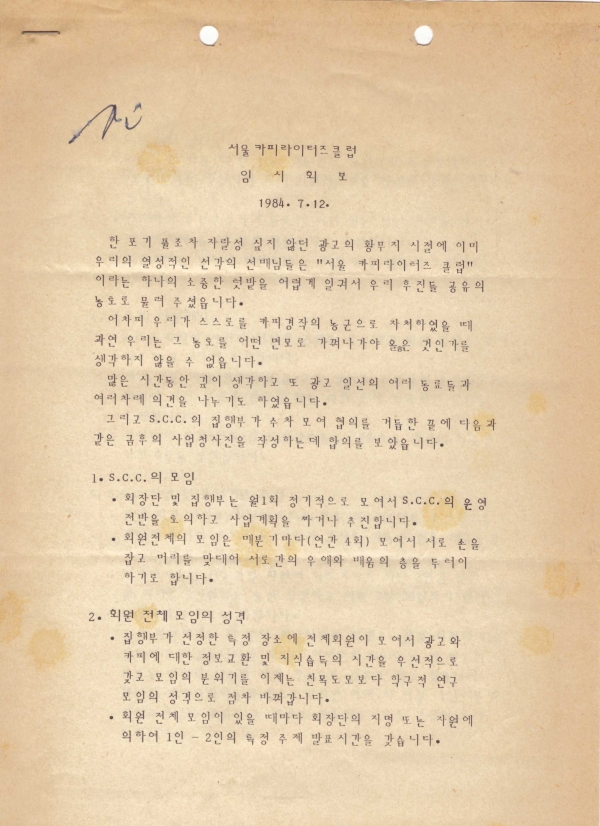 서울 카피라이터즈 클럽
임 시 회 보
1984. 7.12.
한 포기 풀조차 자랄성 싶지 않던 광고의 황무지 시절에 이미
우리의 열성적인 선각의 선배님들은 "서울 카피라이터즈 클럽"
이라는 하나의 소중한 텃밭을 어렵게 일궈서 우리 후진들 공유의
농로로 물려 주셨읍니다.
어차피 우리가 스스로를 카피경작의 농군으로 자처하였을 때
과연 우리는 그 농로를 어떤 면모로 가꿔나가야 옳은 것인가를
생각하지 않을 수 없읍니다.
많은 시간동안 깊이 생각하고 또 광고 일선의 여러 동료들과
여러차례 의견을 나누기도 하였읍니다.
그리고 S.C.C.의 집행부가 수차 모여 협의를 거듭한 끝에 다음과
같은 금후의 사업청사진을 작성하는데 합의를 보았읍니다.
1. S.C.C.의 모임
• 회장단 및 집행부는 월1회 정기적으로 모여서 S.C.C.의 운영
전반을 토의하고 사업계획을 짜거나 추진합니다.
• 회원전체의 모임은 매분기마다(연간 4회) 모여서 서로 손을
잡고 머리를 맞대어 서로간의 우애와 배움의 충을 두러이
하기로 합니다.
2. 회원 전체 모임의 성격
• 집행부가 선정한 특정 장소에 전체회원이 모여서 광고와
카피에 대한 정보교환 및 지식습득의 시간을 우선적으로
갖고 모임의 분위기를 이제는 친목도모보다 학구적 연구
모임의 성격으로 점차 바꿔갑니다.
• 회원 전체 모임이 있을 때마다 회장단의 지명 또는 자원에
의하여 1인 - 2인의 특정 주제 발표시간을 갖습니다.